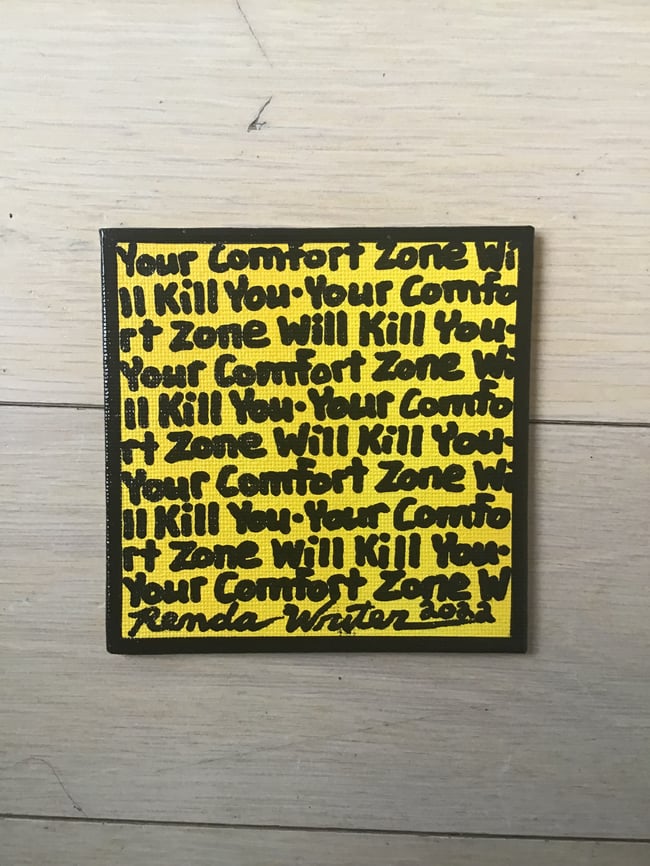 Your Comfort Zone Wi
ll Kill You•Your Comfo
rt Zone Will Kill You•
Your Comfort Zone Wi
ll Kill You•Your Comfo
rt Zone Will Kill You•
Your Comfort Zone Wi
ll Kill You•Your Comfo
rt Zone Will Kill You•
Your Comfort Zone W
Renda Writer 2022